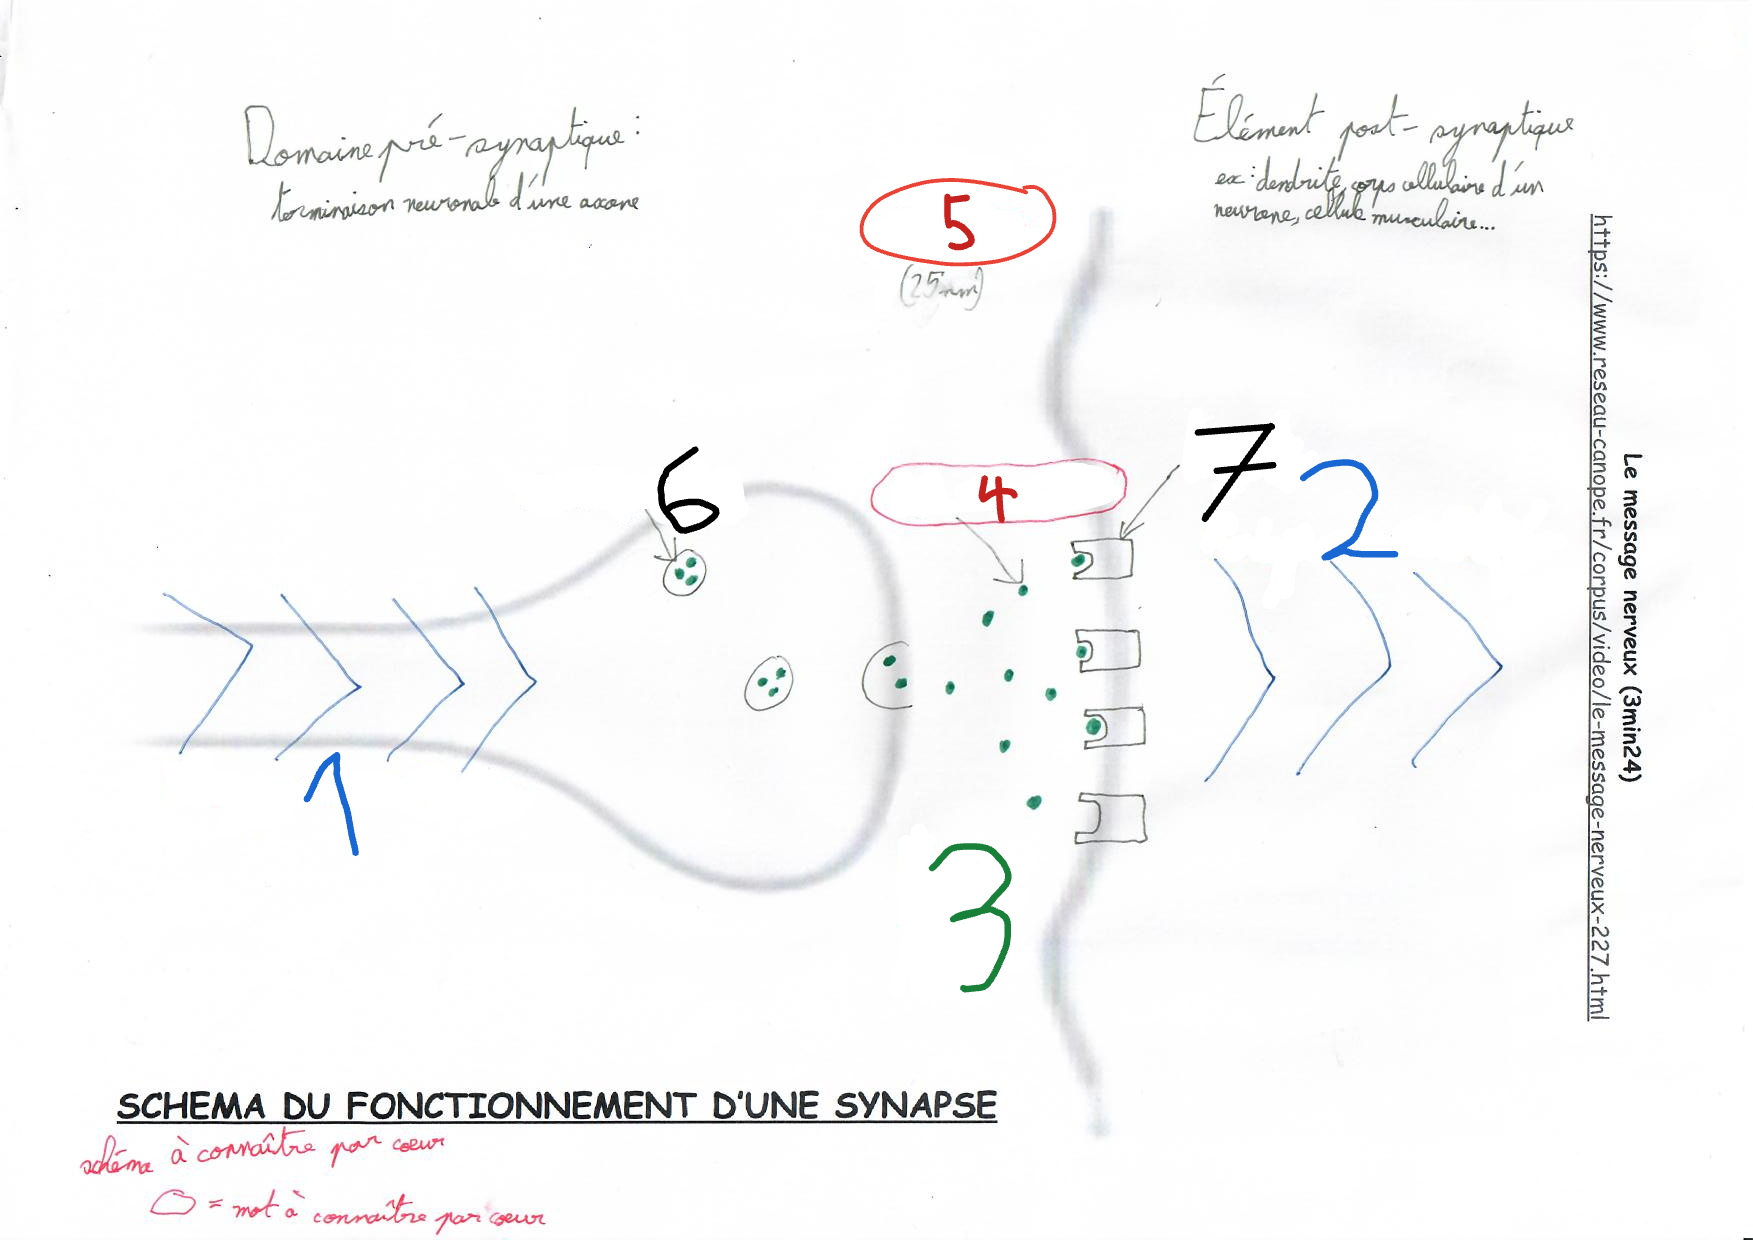 Domaine pré-synaptique :
terminaison neuronale d'une axone
Élément post-synaptique
ex : dendrite, corps cellulaire d'un
neurone, cellule musculaire...
5
(25nm)
6
4
7
2
1
3
Le message nerveux (3min24)
https://www.reseau-canope.fr/corpus/video/le-message-nerveux-227.html
SCHEMA DU FONCTIONNEMENT D'UNE SYNAPSE
schéma à connaître par coeur
= mot à connaître par coeur